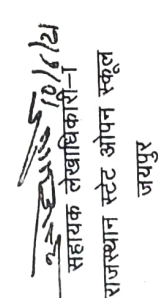 सहायक लेखाधिकारी-I
राजस्थान स्टेट ओपन स्कूल
जयपुर